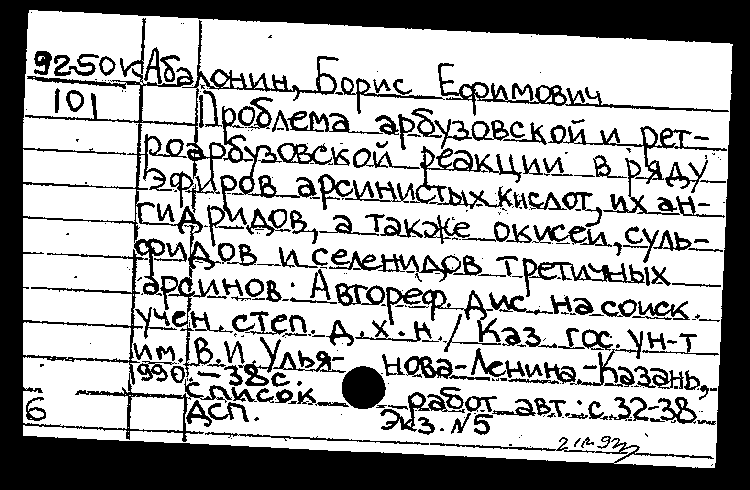 92-50к Абалонин, Борис Ефимович
101 Проблема арбузовской и рет-
роарбузовской реакции в ряду
эфиров арсинистых кислот, их ан-
гидридов, а также окисей, суль-
фидов и селенидов третичных
арсинов: Автореф. дис. на соиск.
учен. степ. д.х.н. / Каз. гос. ун-т
им. В.И. Улья- нова-Ленина.-Казань,
1990 - 38с.
список работ авт.: с. 32-38
6 ДСП. Экз. N5